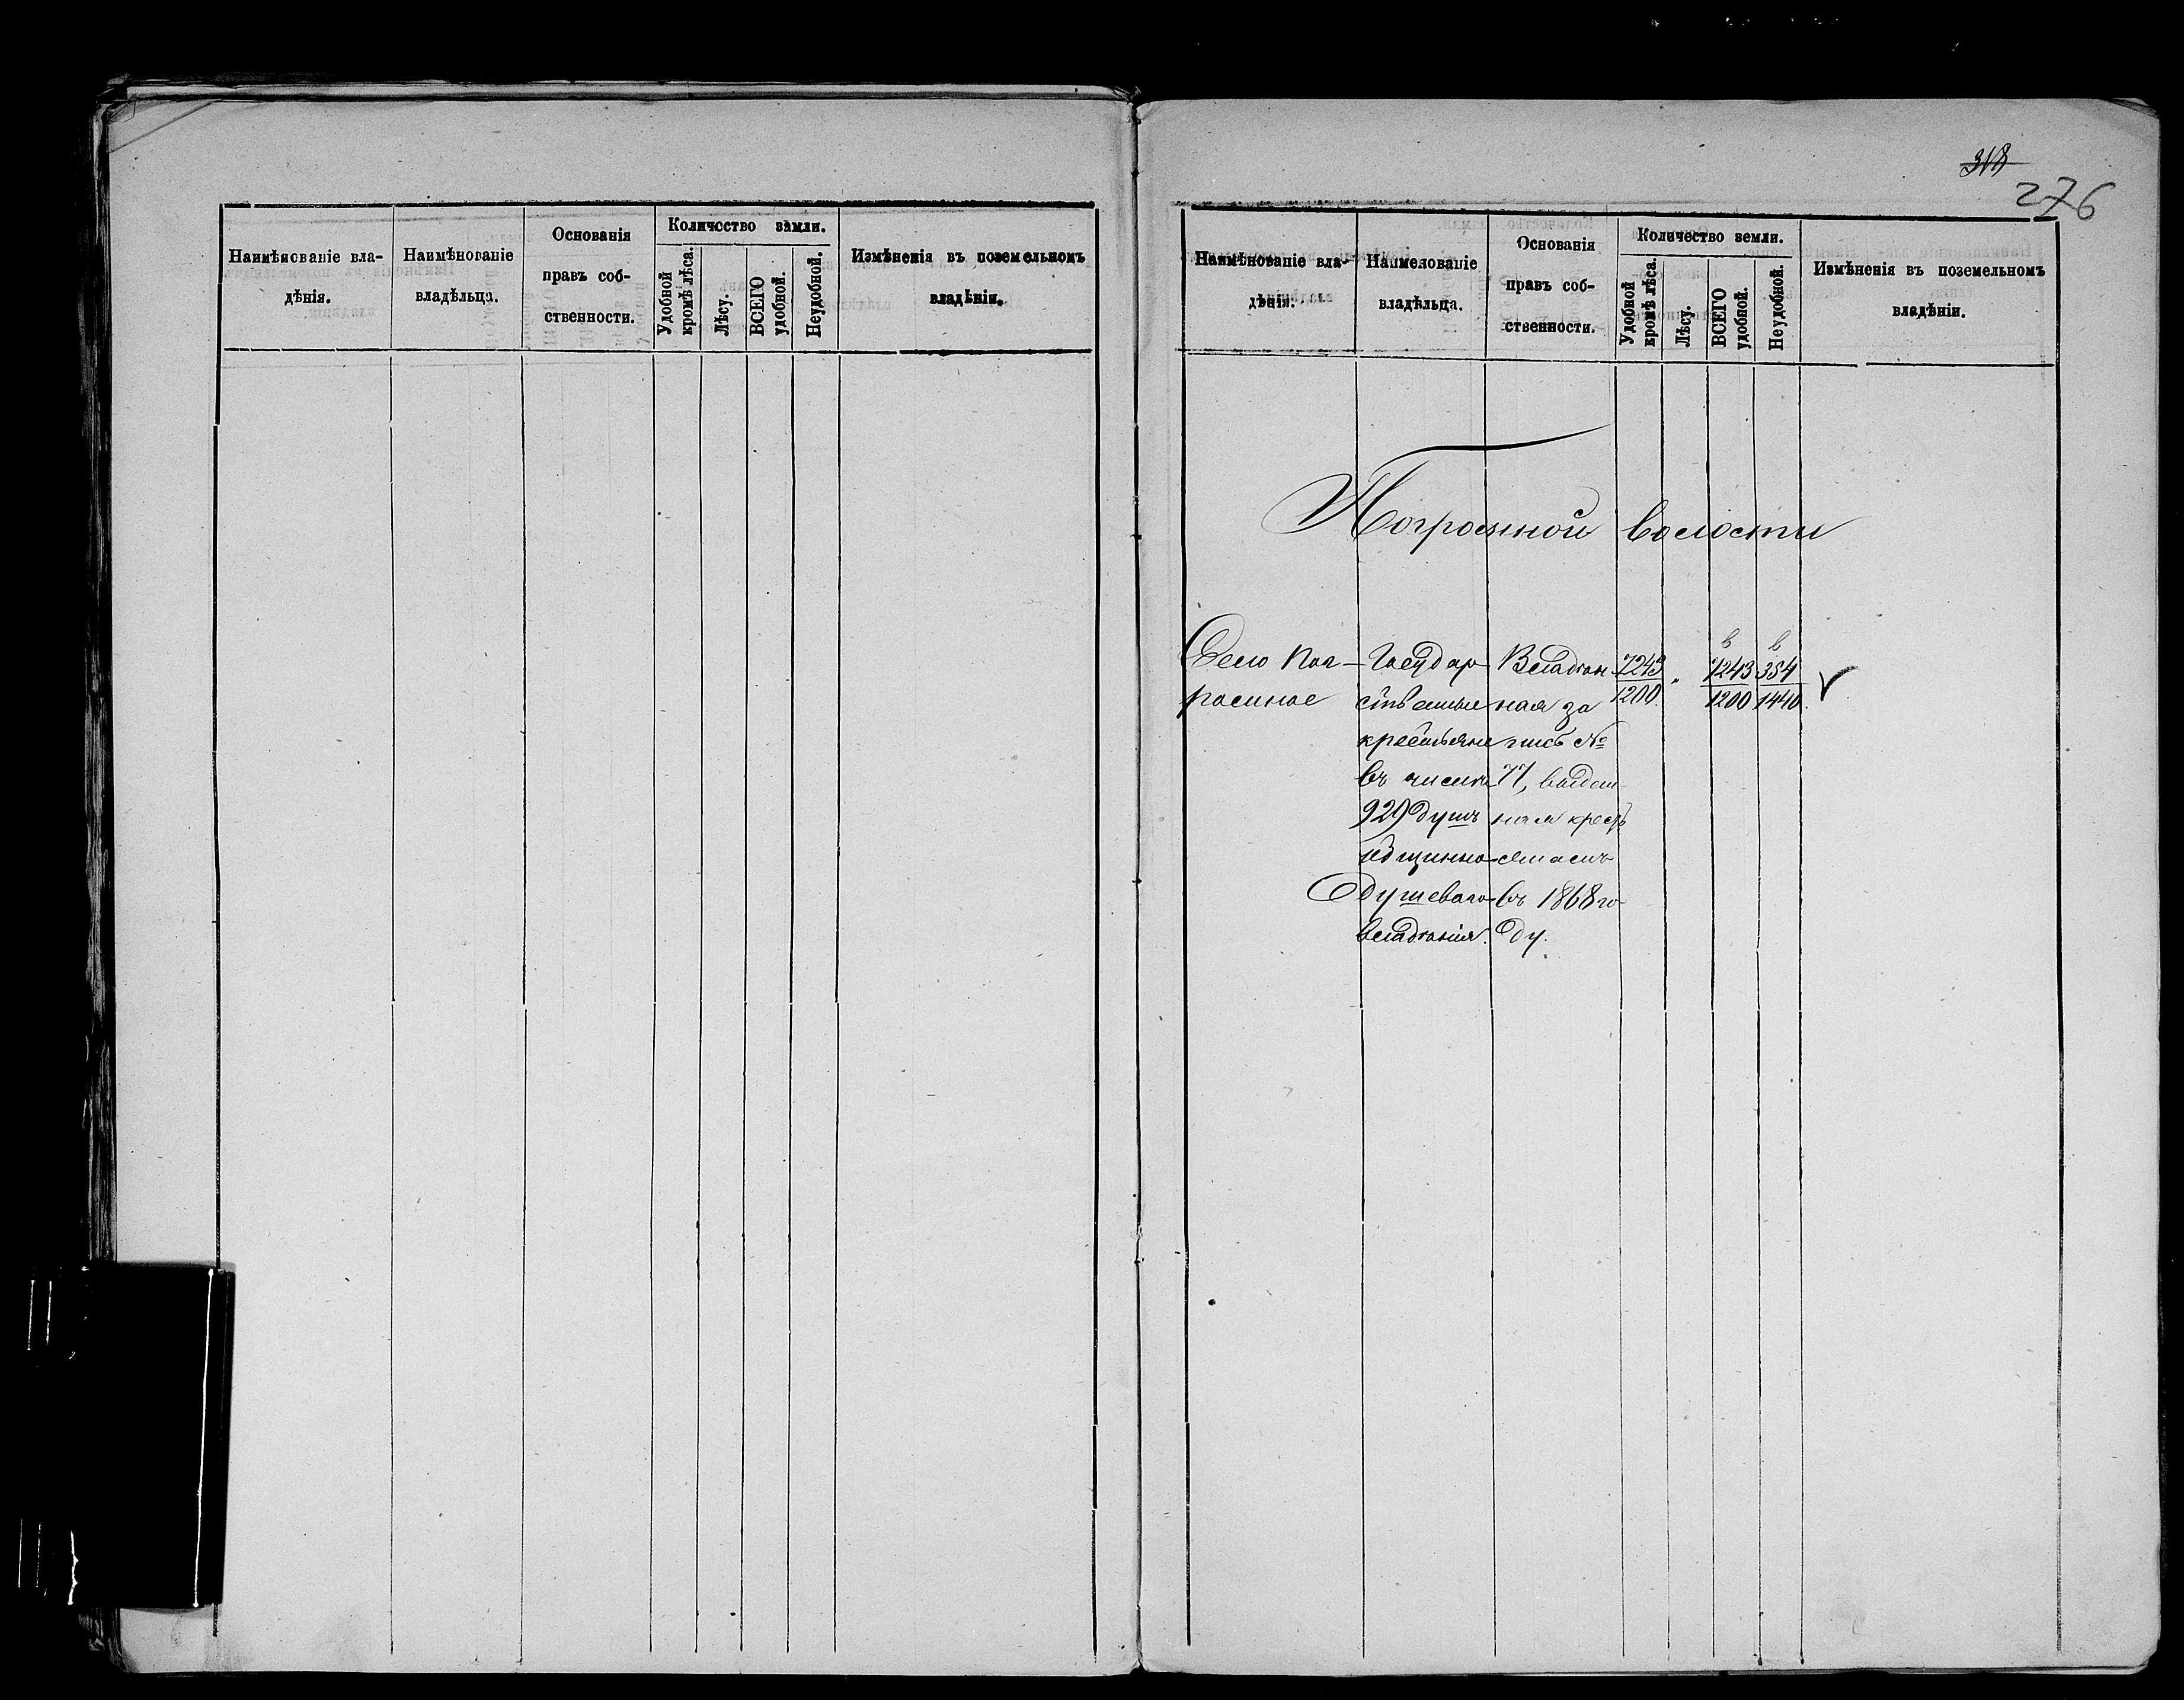 Наимѣнованіе вла-
дѣнія.
Наимѣнованіе
владѣльца.
Основанія
правъ соб-
ственности.
Количество земли.
Удобной
кромѣ лѣса.
Лѣсу.
ВСЕГО
удобной.
Неудобной.
Измѣненія въ поземельномъ
владѣніи.
318
276
Наимѣнованіе вла-
дѣнія.
Наименованіе
владѣльца.
Основанія
правъ соб-
ственности.
Количество земли.
Удобной
кромѣ лѣса.
Лѣсу.
ВСЕГО
удобной.
Неудобной.
Измѣненія въ поземельномъ
владѣніи.
Погромной волости
Село Пог-
ромное
Государ
ственные
крестьяне
въ числѣ
929 душъ
общинно
душеваго
владѣнія.
Владѣн
ная за
пись №
77, выдан
ная кресть
янамъ
въ 1868 го
ду.
7243
1200
"
в
7243
1200
в
354
1440